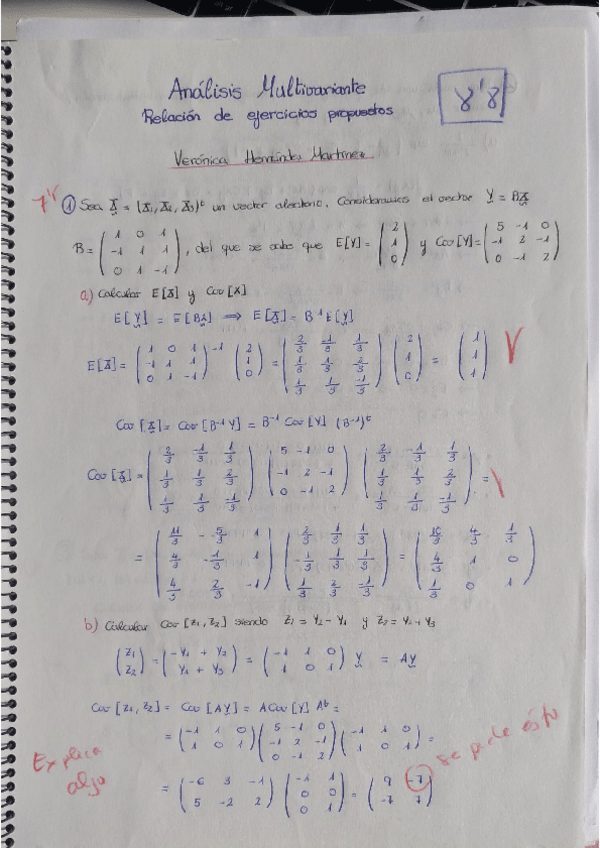 Análisis Multivariante
Relación de ejercicios propuestos
8'8
Verónica Hernández Martínez
① Sea X = (X₁, X₂, X₃)ᵗ un vector aleatorio. Consideramos el vector Y = BX
B = ( 1 0 1 / -1 1 1 / 0 1 -1 ), del que se sabe que E[Y] = ( 2 / 1 / 0 ) y Cov[Y] = ( 5 -1 0 / -1 2 -1 / 0 -1 2 )
a) Calcular E[X] y Cov[X]
E[Y] = E[BX] ⟹ E[X] = B⁻¹ E[Y]
E[X] = ( 1 0 1 / -1 1 1 / 0 1 -1 )⁻¹ ( 2 / 1 / 0 ) = ( 2/3 -1/3 1/3 / 1/3 1/3 2/3 / 1/3 1/3 -1/3 ) ( 2 / 1 / 0 ) = ( 1 / 1 / 1 )
Cov[X] = Cov[B⁻¹Y] = B⁻¹ Cov[Y] (B⁻¹)ᵗ
Cov[X] = ( 2/3 -1/3 1/3 / 1/3 1/3 2/3 / 1/3 1/3 -1/3 ) ( 5 -1 0 / -1 2 -1 / 0 -1 2 ) ( 2/3 -1/3 1/3 / 1/3 1/3 2/3 / 1/3 1/3 -1/3 ) =
= ( 11/3 -5/3 1 / 4/3 -1/3 1 / 4/3 2/3 -1 ) ( 2/3 1/3 1/3 / -1/3 1/3 1/3 / 1/3 2/3 -1/3 ) = ( 10/3 4/3 1/3 / 4/3 1 0 / 1/3 0 1 )
b) Calcular Cov[Z₁, Z₂] siendo Z₁ = Y₂ - Y₁ y Z₂ = Y₁ + Y₃
( Z₁ / Z₂ ) = ( -Y₁ + Y₂ / Y₁ + Y₃ ) = ( -1 1 0 / 1 0 1 ) Y = AY
Cov[Z₁, Z₂] = Cov[AY] = A Cov[Y] Aᵗ =
= ( -1 1 0 / 1 0 1 ) ( 5 -1 0 / -1 2 -1 / 0 -1 2 ) ( -1 1 0 / 1 0 1 ) =
se pide ésto
Explica
algo
= ( -6 3 -1 / 5 -2 2 ) ( -1 1 / 1 0 / 0 1 ) = ( 9 -7 / -7 7 )